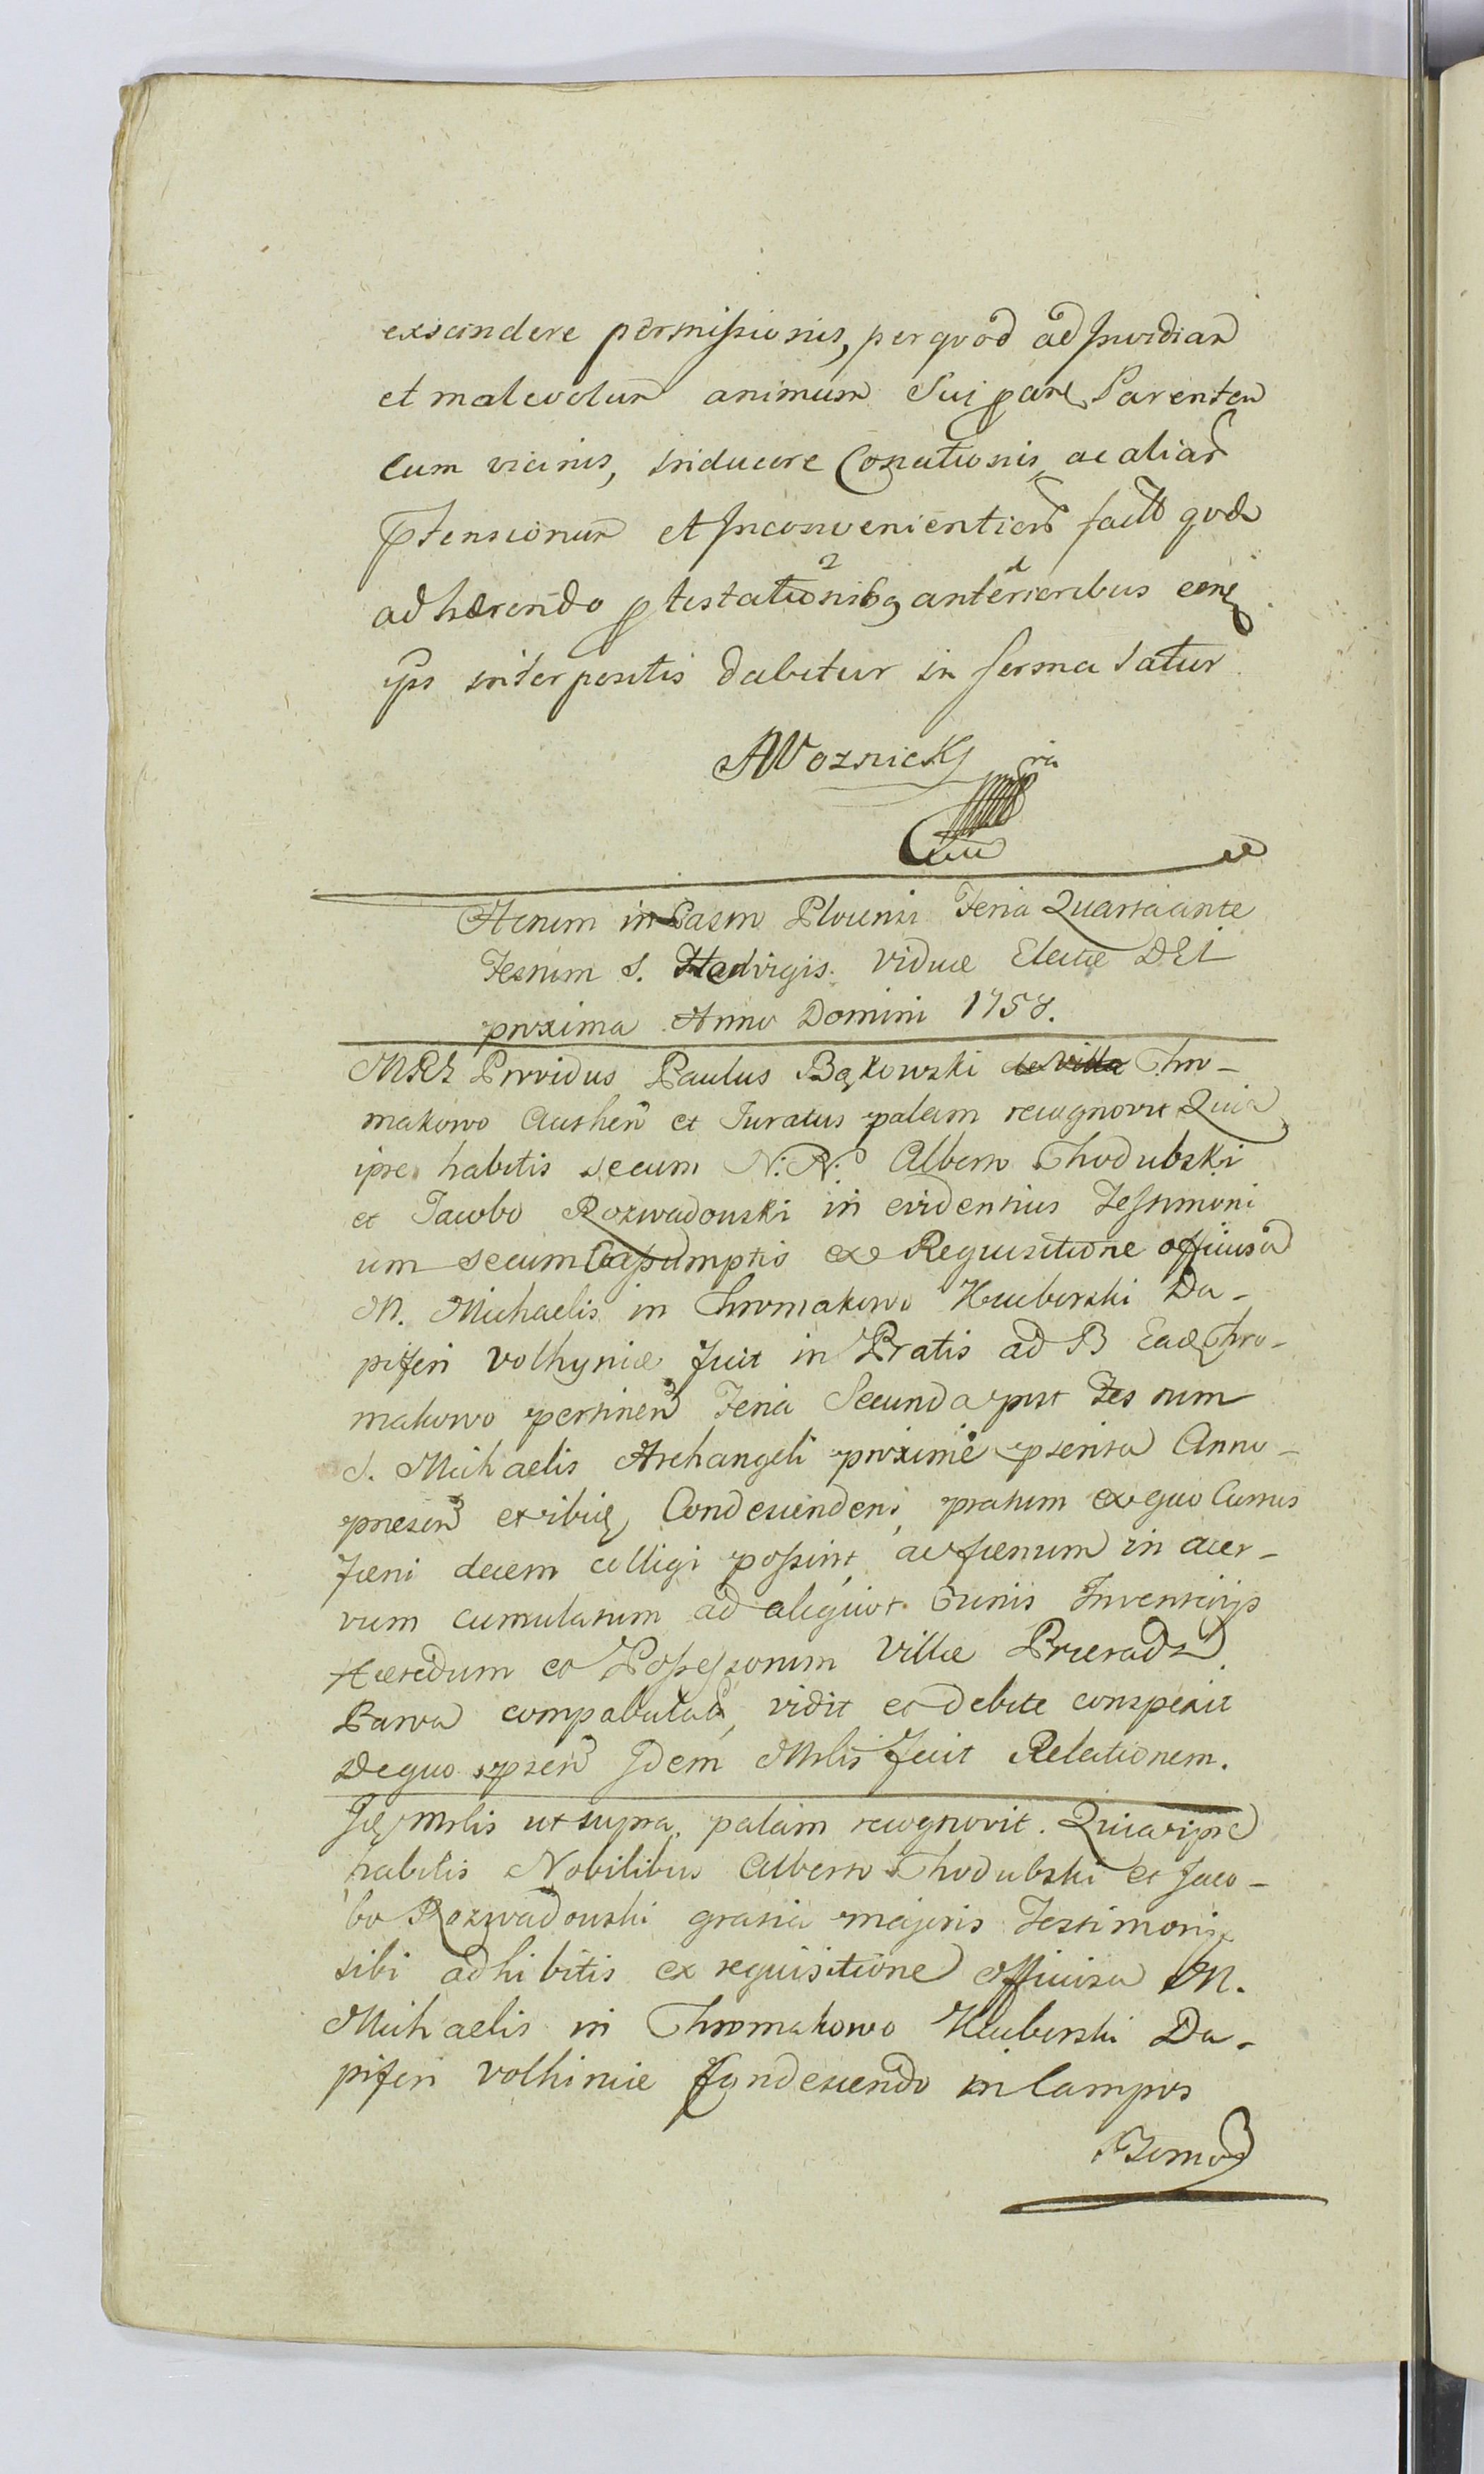 exscindere permissionis, per quod ad Invidiam
et malevolum animum Sui pare Parentem
cum vicinis, inducere Conationis, ac aliar
ptensionum et Inconvenientiar facto quod
adhærendo ptestationibq anterioribus eoneq
ips interpositis dabitur in forma Satur
AWoznicky
Actum in Castro Plocensi Feria Quarta ante
Festum S. Hedvigis Viduæ Electæ DEI
proxima Anno Domini 1758.
Providus Paulus Bąkowski de Villa Chro-
makowo Authen et Juratus palam recognovit Quia
ipse habitis secum N: N: Alberto Chodubski
et Jacobo Rozwadowski in evidentius Testimoni
um secum assumptis ex Requisitione officiosa
M. Michaelis in Chromakowo Kuberski Da-
piferi Volhyniæ fuit in Pratis ad B Ead Chro-
makowo pertinen Feria Secunda post Festum
S. Michaelis Archangeli proxime pterita Anno
præsen et ibiq Condescendens, pratum ex quo Currus
fœni decem colligi possint, ac fœnum in acer-
vum cumulatum ad aliquot
Hæredum et Possessorum Villæ
Parva compabulat, vidit et debite conspexit
De quo psen Idem Mrlis fecit Relationem.
Idq Mrlis ut supra palam recognovit. Quia ipse
habitis Nobilibus Alberto Chodubski et Jaco-
bo Rozwadowski gratia majoris Testimonij
sibi adhibitis ex requisitione officiosa M.
Michaelis in Chromakowo Kuberski Da-
piferi Volhiniæ Condescendo in Campos